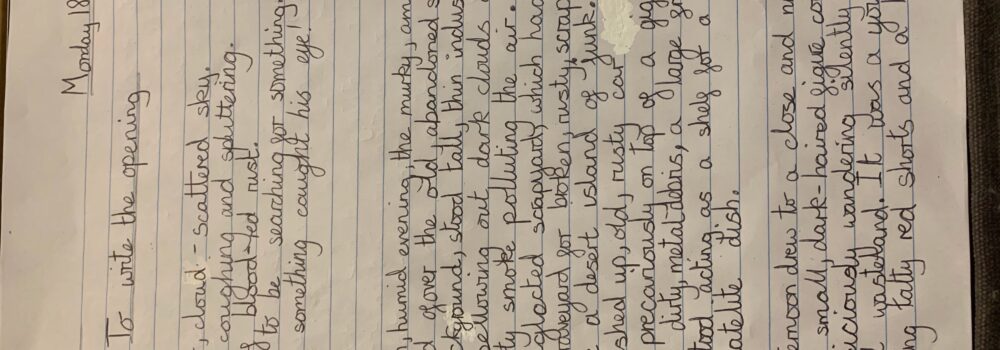 Monday 18
To write the opening
, cloud-scattered sky.
coughing and spluttering.
blood-red rust.
to be searching for something.
something caught his eye!
, humid evening, the murky, am
d over the old, abandoned s
ckground, stood tall, thin indus
bellowing out dark clouds
ty smoke polluting the air.
glacted scrapyard, which had
aveyard for broken, rusty, scrap
a desert island of junk.
shed up, old, rusty car
precariously on top of a gig
dity, metal debris, a large
tood acting as a shelf for a
atelite dish.
ernoon drew to a close and
small, dark-haired figure co
iciously wandering silently
wasteland. It was a you
ng tatty red shorts and a